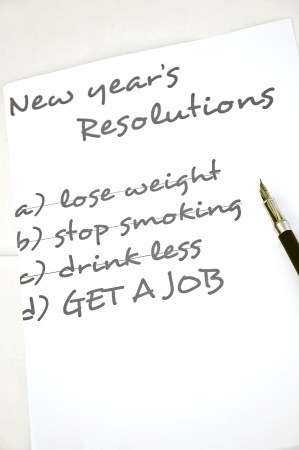 New year's
Resolutions
a) lose weight
b) stop smoking
c) drink less
d) GET A JOB